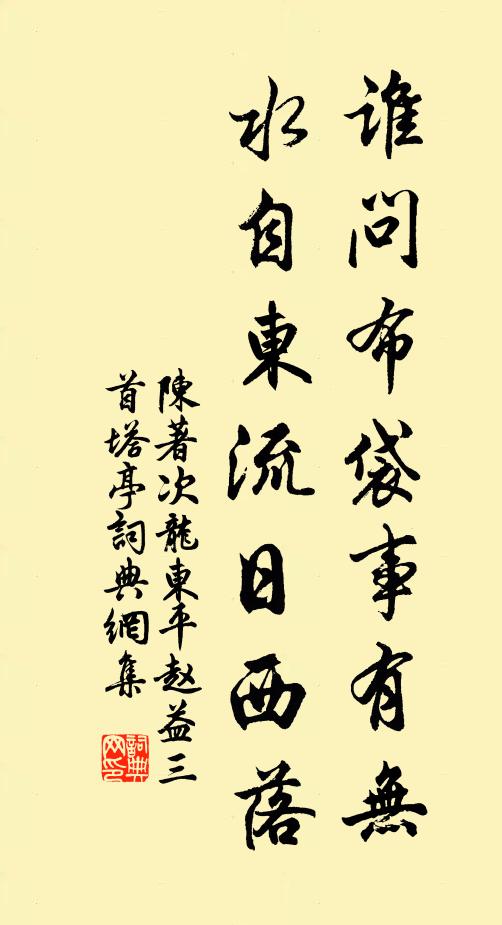 誰問布袋事有無
水自東流日西落
陳著次龍東平赵益三
首塔亭詞典網集
詞典
网印